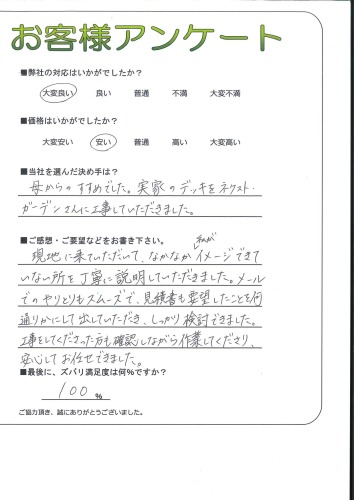 お客様アンケート
■弊社の対応はいかがでしたか？
大変良い 良い 普通 不満 大変不満
■価格はいかがでしたか？
大変安い 安い 普通 高い 大変高い
■当社を選んだ決め手は？
母からのすすめでした。実家のデッキをネクスト・
ガーデンさんに工事していただきました。
■ご感想・ご要望などをお書き下さい。
現地に来ていただいて、なかなか私がイメージできて
いない所を丁寧に説明していただきました。メール
でのやりとりもスムーズで、見積書も要望したことを何
通りかにして出していただき、しっかり検討できました。
工事をしてくださった方も確認しながら作業してくださり、
安心してお任せできました。
■最後に、ズバリ満足度は何％ですか？
100 %
ご協力頂き、誠にありがとうございました。